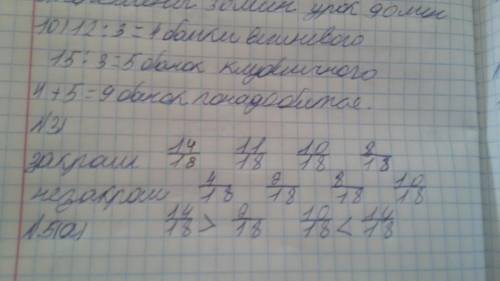 урок 30 мин
10) 12 : 3 = 4 банки вишневого
15 : 3 = 5 банок клубничного
4 + 5 = 9 банок понадобится.
закраш 14/18 11/18 10/18 8/18
незакраш 4/18 9/18 8/18 10/18
14/18 > 9/18 10/18 < 14/18